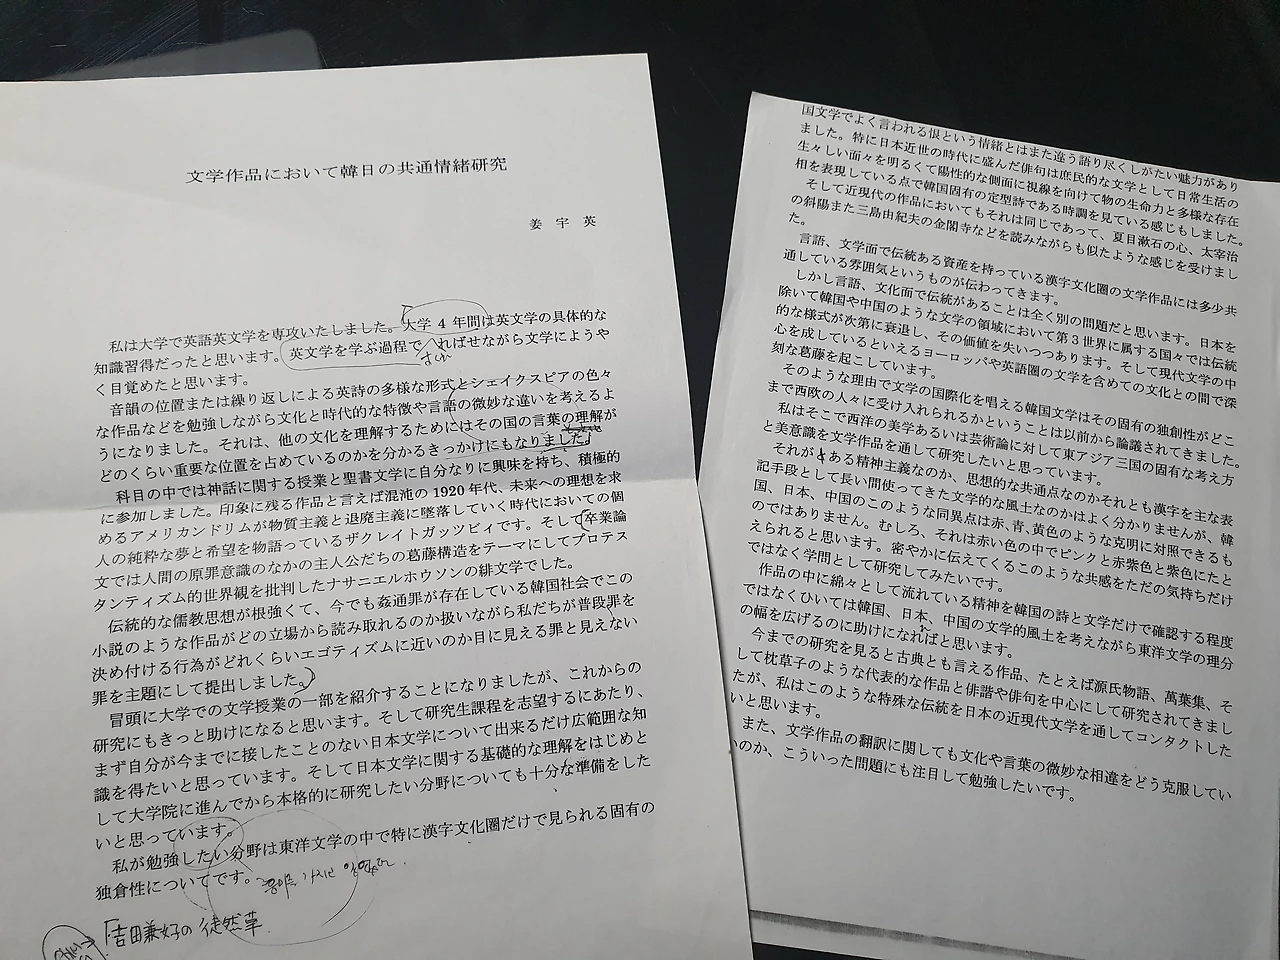 文学作品において韓日の共通情緒研究
姜 宇 英
私は大学で英語英文学を専攻いたしました。大学4年間は英文学の具体的な
知識習得だったと思います。英文学を学ぶ過程で、ればせながら文学にようや
く目覚めたと思います。
音韻の位置または繰り返しによる英詩の多様な形式とシェイクスピアの色々
な作品などを勉強しながら文化と時代的な特徴や言語の微妙な違いを考えるよ
うになりました。それは、他の文化を理解するためにはその国の言葉の理解が
どのくらい重要な位置を占めているのかを分かるきっかけにもなりました。
科目の中では神話に関する授業と聖書文学に自分なりに興味を持ち、積極的
に参加しました。印象に残る作品と言えば混沌の1920年代、未来への理想を求
めるアメリカンドリムが物質主義と退廃主義に墜落していく時代においての個
人の純粋な夢と希望を物語っているザクレイトガッツビィです。そして卒業論
文では人間の原罪意識のなかの主人公だちの葛藤構造をテーマにしてプロテス
タンティズム的世界観を批判したナサニエルホウソンの緋文学でした。
伝統的な儒教思想が根強くて、今でも姦通罪が存在している韓国社会でこの
小説のような作品がどの立場から読み取れるのか扱いながら私だちが普段罪を
決め付ける行為がどれくらいエゴティズムに近いのか目に見える罪と見えない
罪を主題にして提出しました。
冒頭に大学での文学授業の一部を紹介することになりましたが、これからの
研究にもきっと助けになると思います。そして研究生課程を志望するにあたり、
まず自分が今までに接したことのない日本文学について出来るだけ広範囲な知
識を得たいと思っています。そして日本文学に関する基礎的な理解をはじめと
して大学院に進んでから本格的に研究したい分野についても十分な準備をした
いと思っています。
私が勉強したい分野は東洋文学の中で特に漢字文化圏だけで見られる固有の
独創性についてです。
「吉田兼好の徒然草
国文学でよく言われる恨という情緒とはまた違う語り尽くしがたい魅力があり
ました。特に日本近世の時代に盛んだ俳句は庶民的な文学として日常生活の
生々しい面々を明るくて陽性的な側面に視線を向けて物の生命力と多様な存在
相を表現している点で韓国固有の定型詩である時調を見ている感じもしました。
そして近現代の作品においてもそれは同じであって、夏目漱石の心、太宰治
の斜陽また三島由紀夫の金閣寺などを読みながらも似たような感じを受けまし
た。
言語、文学面で伝統ある資産を持っている漢字文化圏の文学作品には多少共
通している雰囲気というものが伝わってきます。
しかし言語、文化面で伝統があることは全く別の問題だと思います。日本を
除いて韓国や中国のような文学の領域において第3世界に属する国々では伝統
的な様式が次第に衰退し、その価値を失いつつあります。そして現代文学の中
心を成しているといえるヨーロッパや英語圏の文学を含めての文化との間で深
刻な葛藤を起こしています。
そのような理由で文学の国際化を唱える韓国文学はその固有の独創性がどこ
まで西欧の人々に受け入れられるかということは以前から論議されてきました。
私はそこで西洋の美学あるいは芸術論に対して東アジア三国の固有な考え方
と美意識を文学作品を通して研究したいと思っています。
それがある精神主義なのか、思想的な共通点なのかそれとも漢字を主な表
記手段として長い間使ってきた文学的な風土なのかはよく分かりませんが、韓
国、日本、中国のこのような同異点は赤、青、黄色のような克明に対照できるも
のではありません。むしろ、それは赤い色の中でピンクと赤紫色と紫色にたと
えられると思います。密やかに伝えてくるこのような共感をただの気持ちだけ
ではなく学問として研究してみたいです。
作品の中に綿々として流れている精神を韓国の詩と文学だけで確認する程度
ではなくひいては韓国、日本、中国の文学的風土を考えながら東洋文学の理分
の幅を広げるのに助けになればと思います。
今までの研究を見ると古典とも言える作品、たとえば源氏物語、萬葉集、そ
して枕草子のような代表的な作品と俳諧や俳句を中心にして研究されてきまし
たが、私はこのような特殊な伝統を日本の近現代文学を通してコンタクトした
いと思います。
また、文学作品の翻訳に関しても文化や言葉の微妙な相違をどう克服してい
いのか、こういった問題にも注目して勉強したいです。